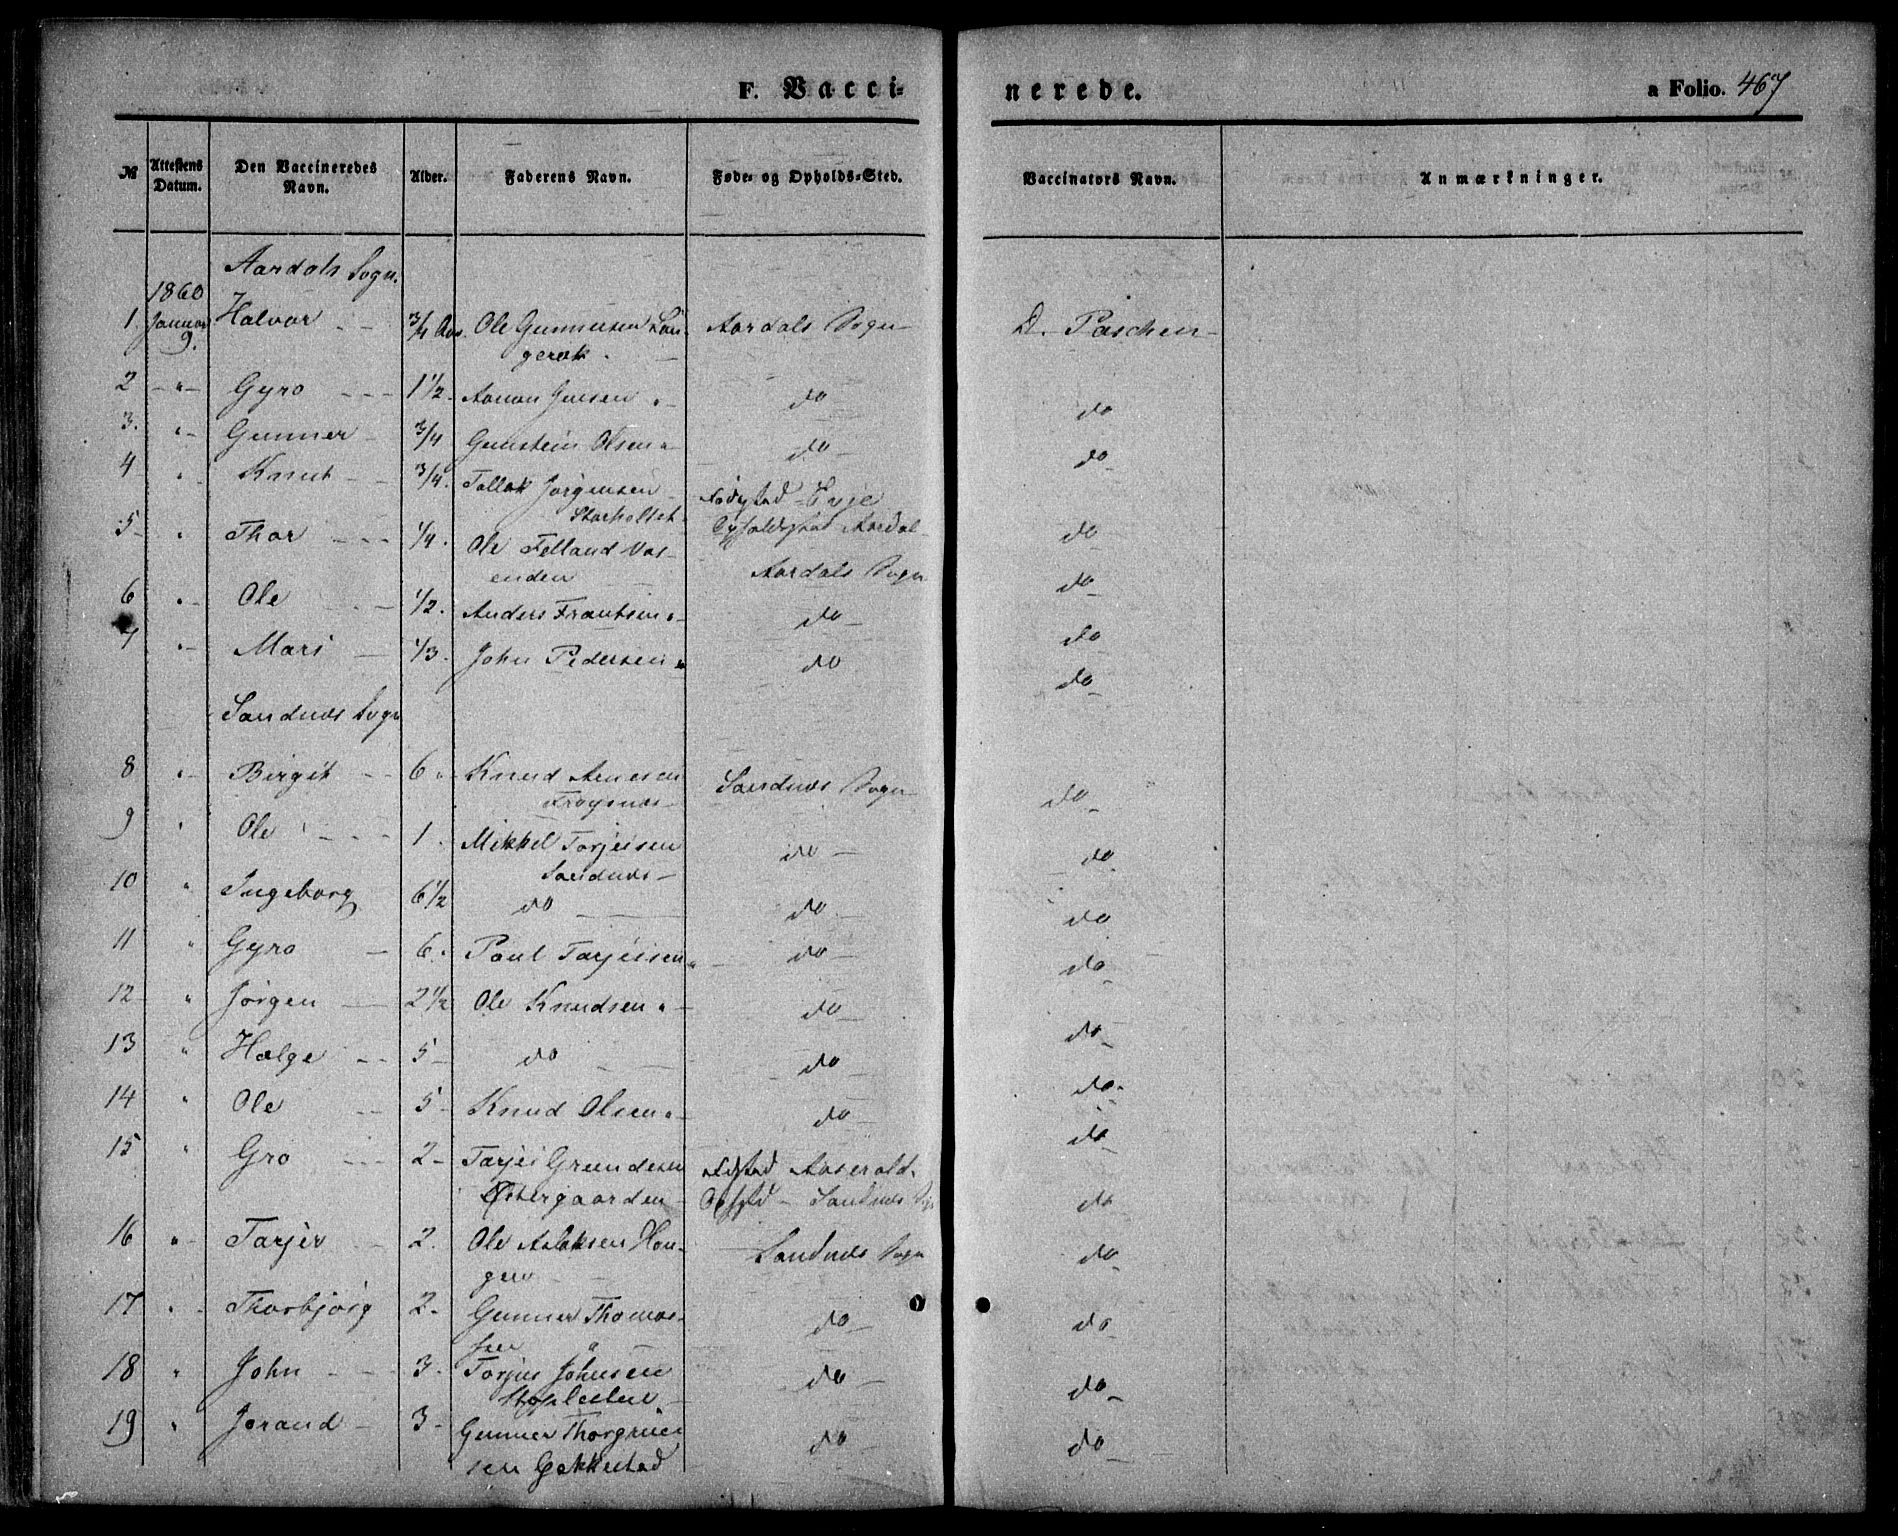 F. Vacci- nerede. a Folio. 467
№ Attestens Datum. Den Vaccineredes Navn. Alder. Faderens Navn. Føde- og Opholds-Sted. Vaccinators Navn. Anmærkninger.
Aardals Sogn.
1860
1. Januar 9. Halvor 3/4 Aar. Ole Gunnersen Lan- Aardals Sogn D. Paschen
gerak
2 " Gyro 1 1/2 Aanon Jensen " do do
3. " Gunner 3/4 Gunstein Olsen " do do
4 " Knut 3/4. Tallak Jørgensen Fødested Evje
Storholtet Opholdssted Aardal do
5 " Thor 1/4. Ole Felland Vas-
enden Aardals Sogn do
6 " Ole 1/2. Anders Frantsen " do do
7 " Mari 1/3. John Pedersen " do do
Sandnæs Sogn
8 " Birgit 6 " Knud Arnesen Sandnæs Sogn do
Frøysnæs
9 " Ole 1. Mikkel Torjeisen do do
Sandnæs
10 " Ingeborg 6 1/2 do do do
11 " Gyro 6. Paul Tarjeisen " do do
12 " Jørgen 2 1/2 Ole Knudsen " do do
13 " Helge 5 do do do.
14 " Ole 5 Knud Olsen " do do
15 " Gro 2 Tarjei Grundesen Fdsted Aaserald.
Østergaarden Ophstd Sandnæs Sogn do
16 " Tarjer 2. Ole Aslaksen Hou- Sandnæs Sogn do
gen
17 " Thorbjørg 2. Gunner Thomas- do do
sen "
18 " John 3. Torjus Johnsen do do
19 " Jorand 3 Gunner Thorgrim- do do
sen Gakkestad